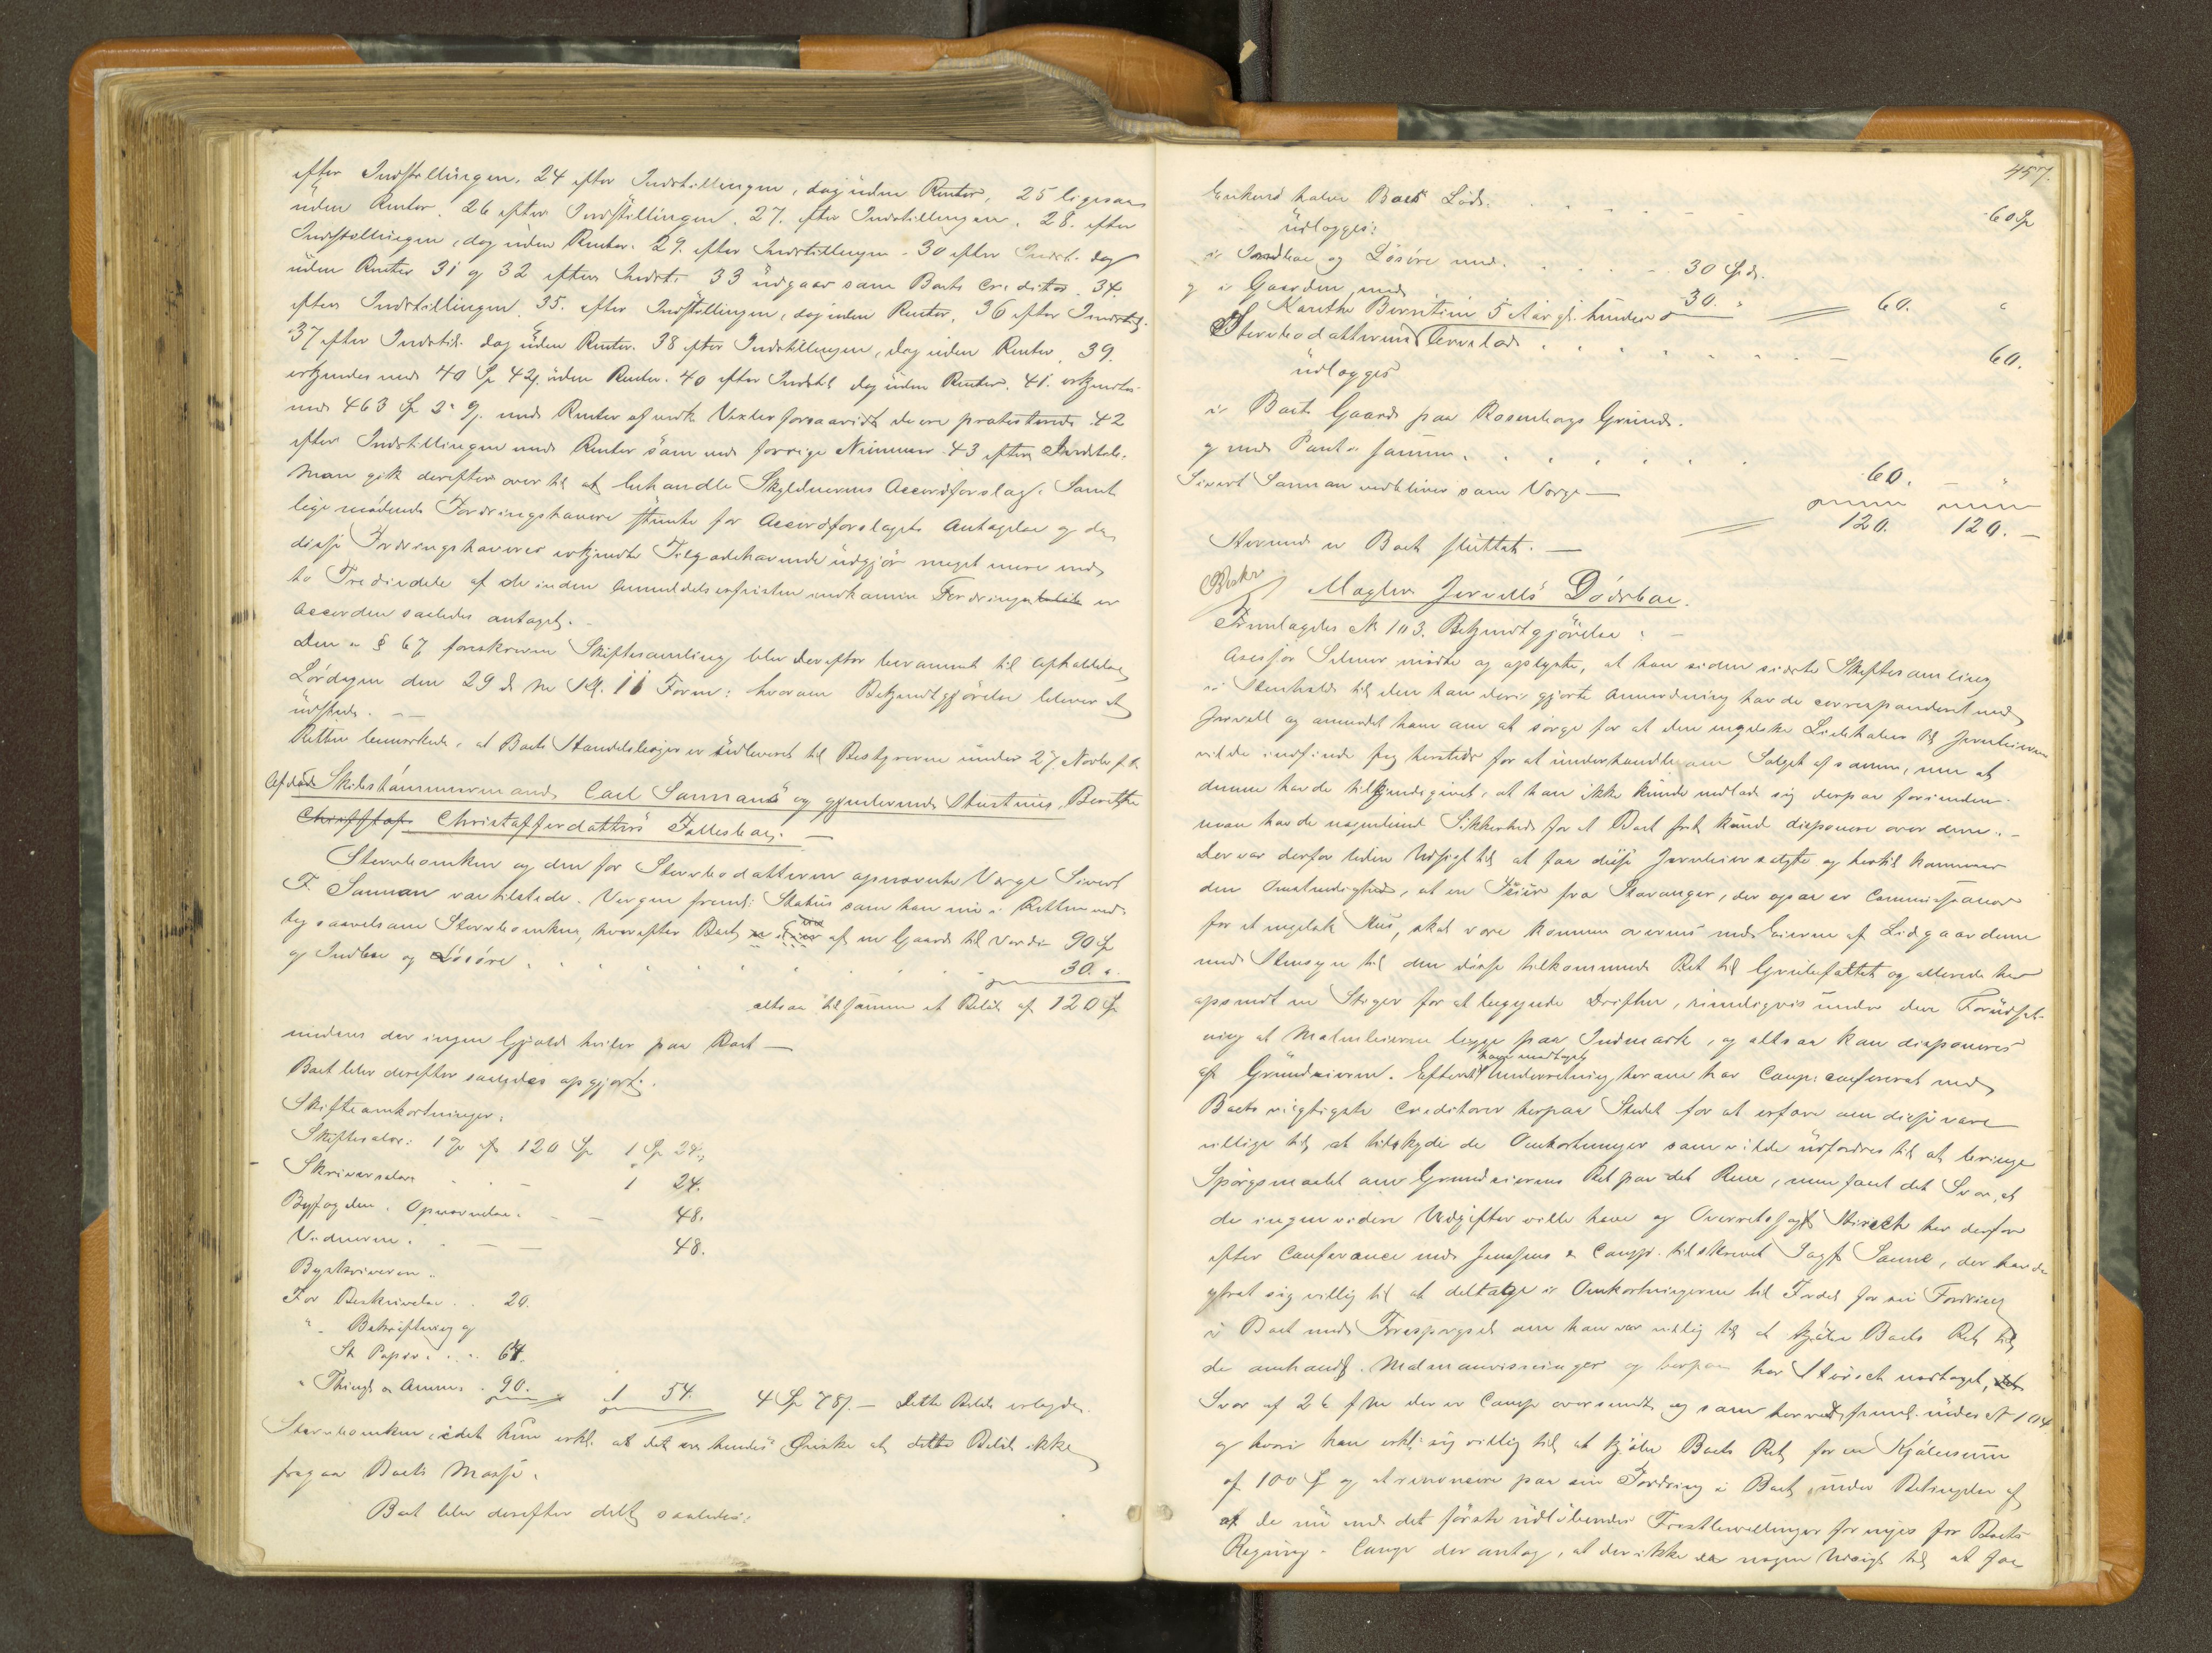 efter Indstillingen. 24 efter Indstillingen, dog uden Renter, 25 ligesaa
uden Renter. 26 efter Indstillingen. 27. efter Indstillingen. 28. efter
Indstillingen, dog uden Renter. 29. efter Indstillingen. 30 efter Indst. dog
uden Renter 31 og 32 efter Indst. 33 udgaar som Boets Creditor. 34.
efter Indstillingen. 35. efter Indstillingen, dog uden Renter, 36 efter Indstil.
37 efter Indstil. dog uden Renter. 38 efter Indstillingen, dog uden Renter, 39.
erkjendes med 40 Sp 42 uden Renter. 40 efter Indstil dog uden Renter. 41. erkjendes
med 463 Sp 3 med Renter af Vexler forsaavidt de ere protesterede. 42
efter Indstillingen med Renter som ved forrige Nummer. 43 efter Indstil.
Man gik derefter over til at behandle Skyldnerens Accordforslag. Samt
lige mødende Fordringshavere stemte for Accordforslagets Antagelse og da
disse Fordringshaveres erkjendte Tilgodehavende udgjør meget mere end
to Trediedele af de inden Anmeldelsesfristen indkomne Fordringer er
Accorden saaledes antaget.
Den i § 67 foreskrevne Skiftesamling blev derefter berammet til Afholdelse
Lørdagen den 29 d. M. Kl. 11 Form: hvorom Bekjendtgjørelse bliver at
udstede.
Retten bemærkede, at Boets Handelsbøger er udleveret til Bestyrerne under 27 Novbr f. A.
Afdøde Skibstømmermand Carl Sannans og gjenlevende Hustrues, Berethe
Christoffersdatters Fællesbo.
Stervboenken og den for Stervbodatteren opnævnte Værge Sivert
F. Sannan var tilstede. Værgen freml. Status som han nu i Retten ved-
tog saavelsom Stervboenken, hvorefter Boet af en Gaard til Værdie 90 Sp
og Indbo og Løsøre . . . . 30. "
altsaa tilsammen et Beløb af 120 Sp
medens der ingen Gjæld hviler paa Boet —
Boet blev derefter saaledes opgjort.
Skifteomkostninger:
Skiftesalær: 1 % af 120 Sp 1 Sp 24
Skriversalær . . - 1 24.
Byfogden: Opnævnelse. - - 48.
Vidnerne. - - 48.
Byskriveren.
For Beskrivelse . . 20.
" Bekræftning og
St. Papir . . . 64.
" Thingl. Annms. 90. 1 54. 4 Sp 78 — Dette Beløb erlagdes
Stervboenken, idet hun erkl. at det var hendes Ønske at dette Beløb ikke
fragaar Boets Masse.
Boet blev derefter delt saaledes:
457.
Enkens halve Boes Lod. . . . . 60 Sp
udlægges:
i Indboe og Løsøre med . . . 30 Spd.
og i Gaarden med 30. " 60. "
Karethe Berntine 5 Aar gl. hendes
Stervbodatterens Arvelod . . . . 60.
udlægges
i Boets Gaard paa Rosenborgs Grund.
og med Pant i samme . . . . 60. —
Sivert Sannan vedbliver som Værge —
120. 120. —
Hermed er Boet sluttet. —
Beskr
Magler Jervells Dødsboe.
Fremlagdes No 103. Bekjendtgjørelse: —
Assessor Selmer mødte og oplyste, at han siden sidste Skiftesamling
i Henhold til den ham deri gjorte Anmodning havde correspondert med
Jervell og anmodet ham om at sørge for at den engelske Liebhaber til Jernleierne
vilde indfinde sig hersteds for at underhandle om Salget af samme, men at
denne havde tilkjendegivet, at han ikke kunde indlade sig derpaa forinden
man havde nogenlund Sikkerhed for at Boet frit kunde disponere over dem. -
Der var derfor liden Udsigt til at faa disse Jernleier solgte og hertil kommer
den Omstendighed, at en Feier fra Stavanger, der ogsaa er Commissionær
for et engelsk Hus, skal være kommen overens med Eierne af Lidgaardene
med Hensyn til den disse tilkommende Ret til Grubefeltet og allerede har
opsendt en Stiger for at begynde Driften, rimeligvis under den Forudsæt-
ning at Malmleierne ligge paa Indmark, og altsaa kan disponeres
af Grundeierne. Efter at have modtaget Underretning herom har Comp: confereret med
Boets vigtigste Creditorer herpaa Stedet for at erfare om disse vare
villige til at tilskyde de Omkostninger som vilde udfordres til at bringe
Spørgsmaalet om Grundeierens Ret paa det Rene, men fandt det Svar, at
de ingen videre Udgifter ville have og Overretssagf. Hirsch har derfor
efter Conferance med Jenssens & Comp. tilskrevet Sagf. Sanne, der havde
ytret sig villig til at deltage i Omkostningerne til Fordel for sin Fordring
i Boet med Forespørgsel om han var villig til at kjøbe Boets Ret til
de omhandl. Malmanvisninger og herpaa har Hirsch modtaget
Svar af 26 f M der er Comp oversendt og som herved freml. under No 104
og hvori han erkl. sig villig til at kjøbe Boets Ret for en Kjøbesum
af 100 Sp og at renoncere paa sin Fordring i Boet, under Betingelse af
at de nu med det første udløbende Fristbevillinger fornyes for Boets
Regning. Comp der antog, at der ikke var nogen Udsigt til at faa